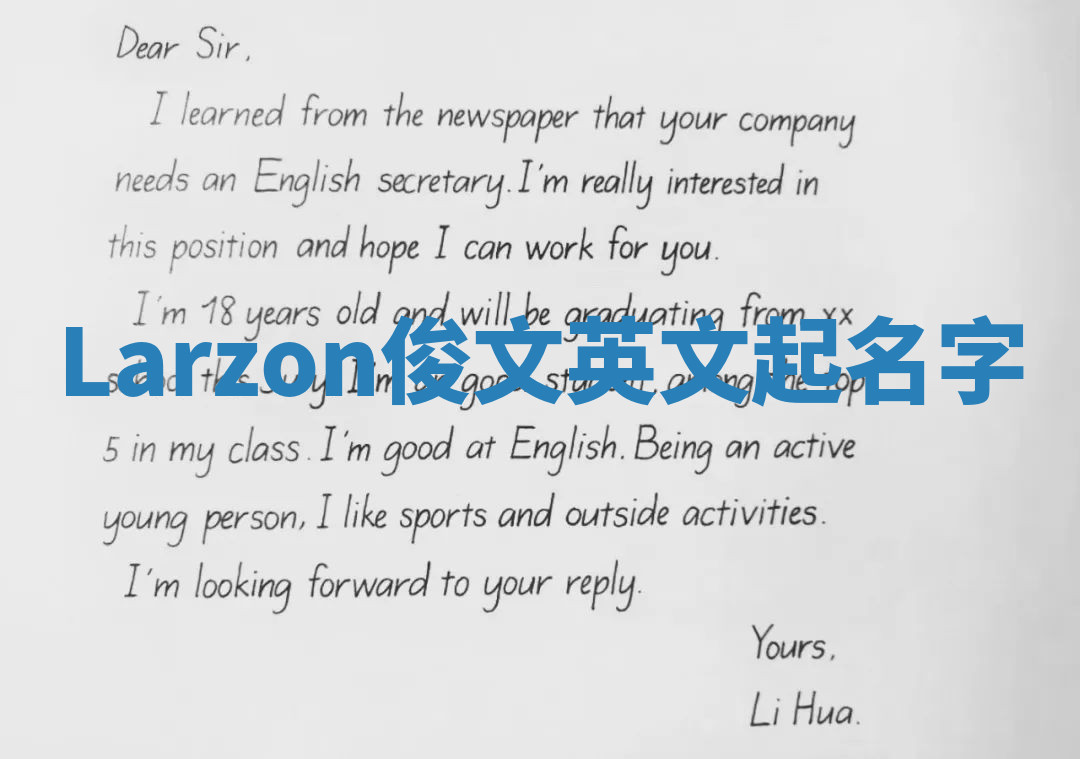 Dear Sir,
I learned from the newspaper that your company
needs an English secretary. I'm really interested in
this position and hope I can work for you.
I'm 18 years old and will be graduating from xx
Larzon俊文英文起名字
school this July. I'm a good student, among the top
5 in my class. I'm good at English. Being an active
young person, I like sports and outside activities.
I'm looking forward to your reply.
Yours,
Li Hua.